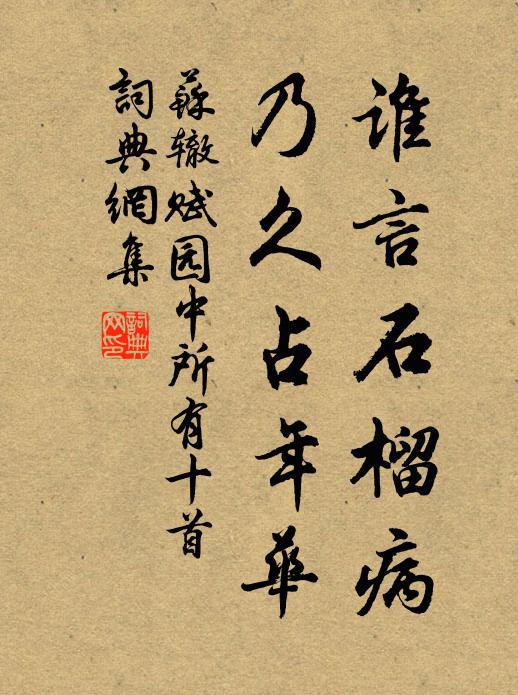 谁言石榴病
乃久占年華
蘇辙赋园中所有十首
詞典網集
詞典网印